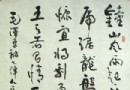 鐘山風雨
虎踞龍盤
慷宜將剩
王天若有情
毛澤東